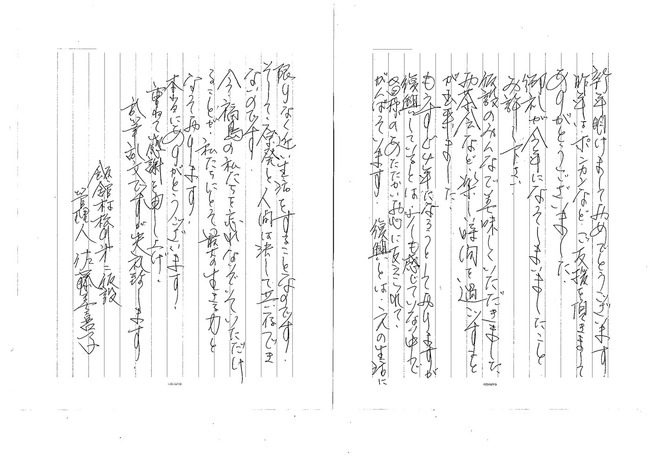 新年明けましておめでとうございます。
昨年はポンカンなどご支援を頂きまして
ありがとうございました。
御礼が今年になってしまいましたこと
お許し下さい
仮設のみんなで美味しくいただきました
お茶会など楽しい時間を過ごすこと
が出来ました
もうすぐ4年になろうとしておりますが
復興しているとは少しも感じていない中で
皆様のあたたかいお心に支えられて、
がんばっています 復興とは 元の生活に
限りなく近い生活をすることなのです
そして原発と人間は決して共存でき
ないのです
今、福島の私たちを忘れないでいていただけ
ることが 私たちにとって最高の生きる力と
なっております
本当にありがとうございます。
重ねて感謝を申し上げ、
乱筆乱文ですが失礼致します。
飯舘村 第二仮設
管理人 佐藤